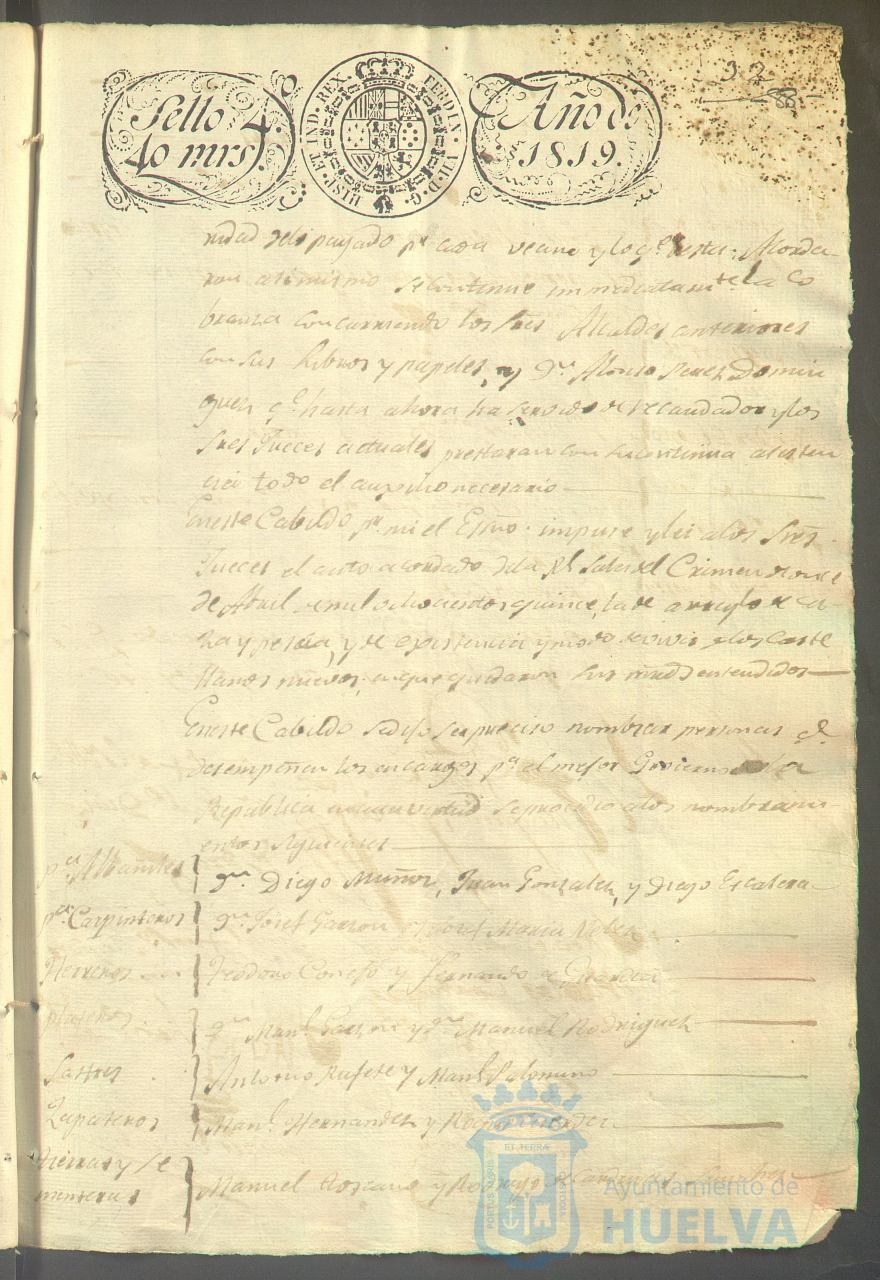 Sello 4.º
40 mrs.
HISP. ET IND. REX. FERDIN. VII. D. G.
Año de
1819.
32
88
nidad del pagado pr. cada vecino y lo qe. resta: Acorda-
ron asimismo se continue inmediatamte. la co
branza concurriendo los Sres. Alcaldes anteriores
con sus libros y papeles, y Dn. Alonso Perez Domin
guez qe. hasta ahora ha servido de recaudador y los
Sres Jueces actuales prestaran con su continua asisten
cia todo el auxilio necesario
En este Cabildo pr. mi el Essno. impuse y lei a los Sres.
Jueces el auto acordado de la Rl. Sala del Crimen
de Abril de mil ochocientos quince, la de arreglo de ca-
za y pesca, y de existencia y modo de vivir de los Caste
llanos nuevos, en que quedaron sus mrds. entendidos
En este Cabildo se dijo ser preciso nombrar personas qe.
desempeñen los encargos pa. el mejor Govierno de la
Republica en cuya virtud se procedio a los nombrami
entos siguientes
pa. Albañiles } Dn. Diego Muñoz, Juan Gonzalez, y Diego Escalera
pa. Carpinteros } Dn. Josef Garzon y Josef Maria
Herreros } Teodoro Conejo y Fernando de
Dn. Manl. y Dn. Manuel Rodriguez
Sastres } Antonio Rufete y Manl. Palomino
Zapateros } Manl. Hernandez y
tierras y se
menteras } Manuel Toscano y Rodrigo
PORTUS MARIS
ET TERRA
CUSTODIA
Ayuntamiento de
HUELVA